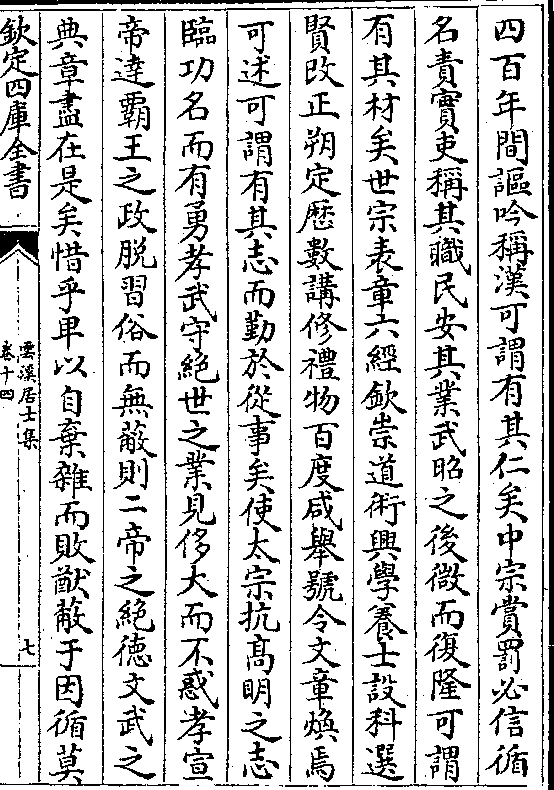 四百年間謳吟稱漢可謂有其仁矣中宗賞罰必信循
名責實吏稱其職民安其業武昭之後微而復隆可謂
有其材矣世宗表章六經欽崇道術興學養士設科選
賢改正朔定歴數講修禮物百度咸舉號令文章煥焉
可述可謂有其志而勤於從事矣使太宗抗高明之志
臨功名而有勇孝武守絶世之業見侈大而不惑孝宣
帝達霸王之政脱習俗而無蔽則二帝之絶徳文武之
典章盡在是矣惜乎卑以自棄雜而敗猷蔽于因循莫
欽定四庫全書
雲溪居士集
卷十四
七